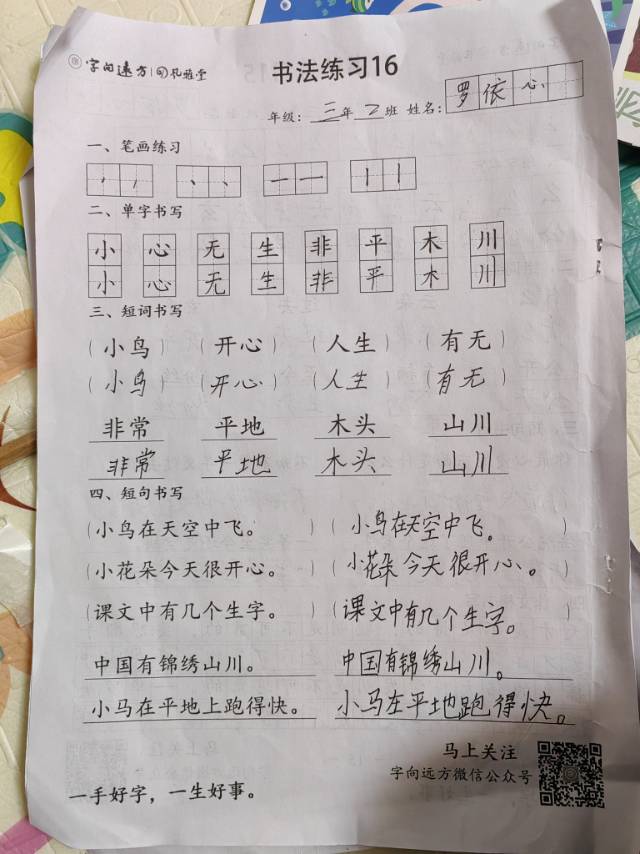 字向远方 | 孔雅堂
书法练习16
年级：三年2班 姓名：罗依心
一、笔画练习
二、单字书写
小 心 无 生 非 平 木 川
小 心 无 生 非 平 木 川
三、短词书写
（小鸟）（开心）（人生）（有无）
（小鸟）（开心）（人生）（有无）
非常 平地 木头 山川
非常 平地 木头 山川
四、短句书写
（小鸟在天空中飞。）（小鸟在天空中飞。）
（小花朵今天很开心。）（小花朵今天很开心。）
（课文中有几个生字。）（课文中有几个生字。）
中国有锦绣山川。 中国有锦绣山川。
小马在平地上跑得快。 小马在平地跑得快。
马上关注
字向远方微信公众号
一手好字，一生好事。